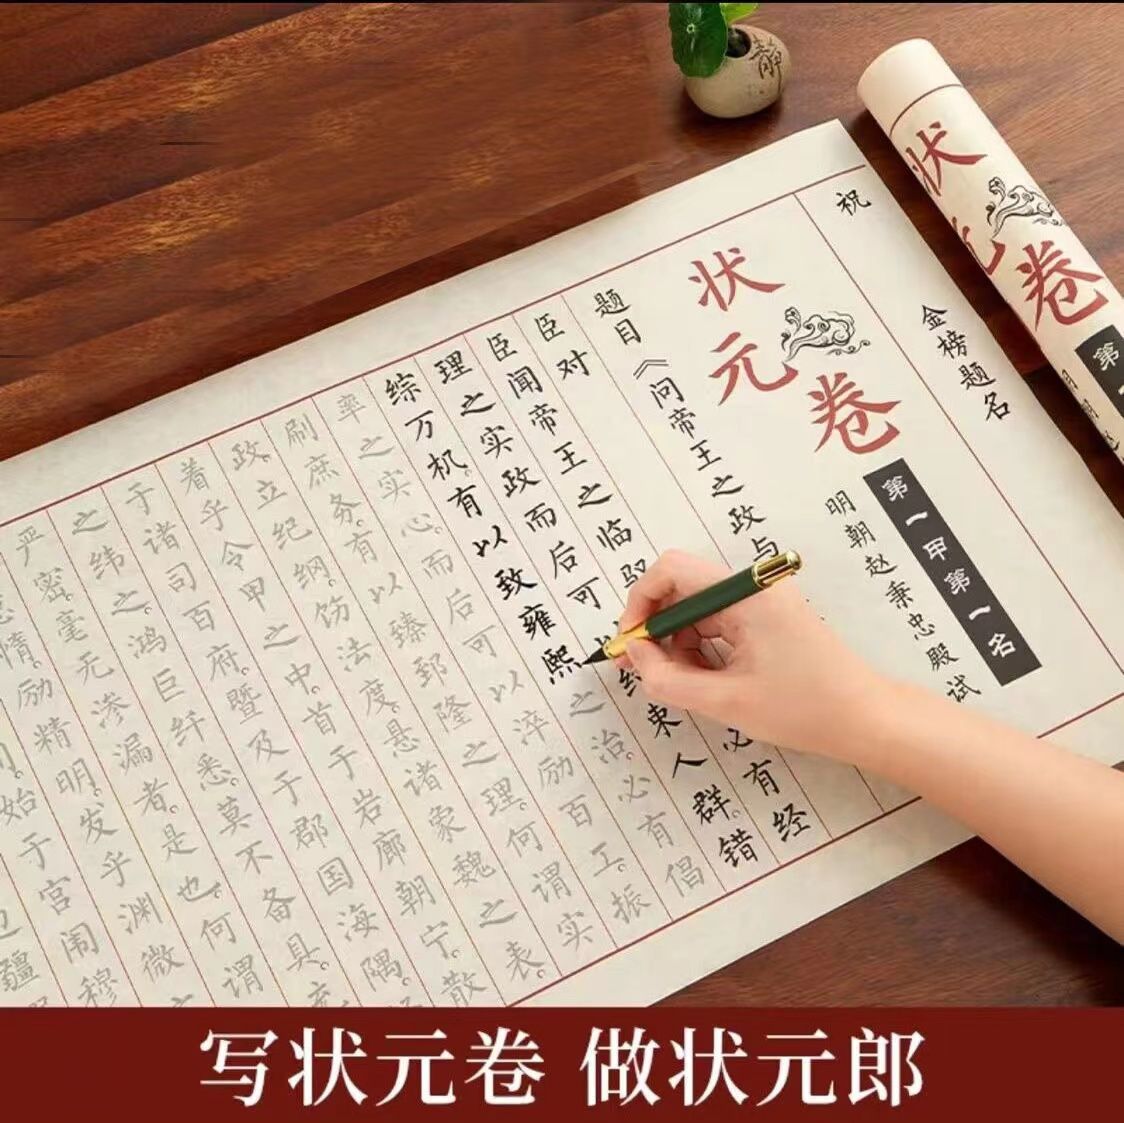 状元卷
第一
祝
金榜题名
状元卷
第一甲第一名
明朝赵秉忠殿试
题目《问帝王之政与
臣对
臣闻帝王之临驭
必有经
理之实政而后可
约束人群。错
综万机。有以致雍熙
之治。必有倡
率之实心。而后可以淬励百工。振
刷庶务。有以臻郅隆之理。何谓实
政。立纪纲。饬法度。悬诸象魏之表。
着乎令甲之中。首于岩廊朝宁。散
于诸司百府。暨及于郡国海隅。
之纬之。鸿巨纤悉。莫不备具。充
严密。毫无渗漏者是也。何谓
惰。励精明。发乎渊微
始于宫闱穆
疆
写状元卷 做状元郎